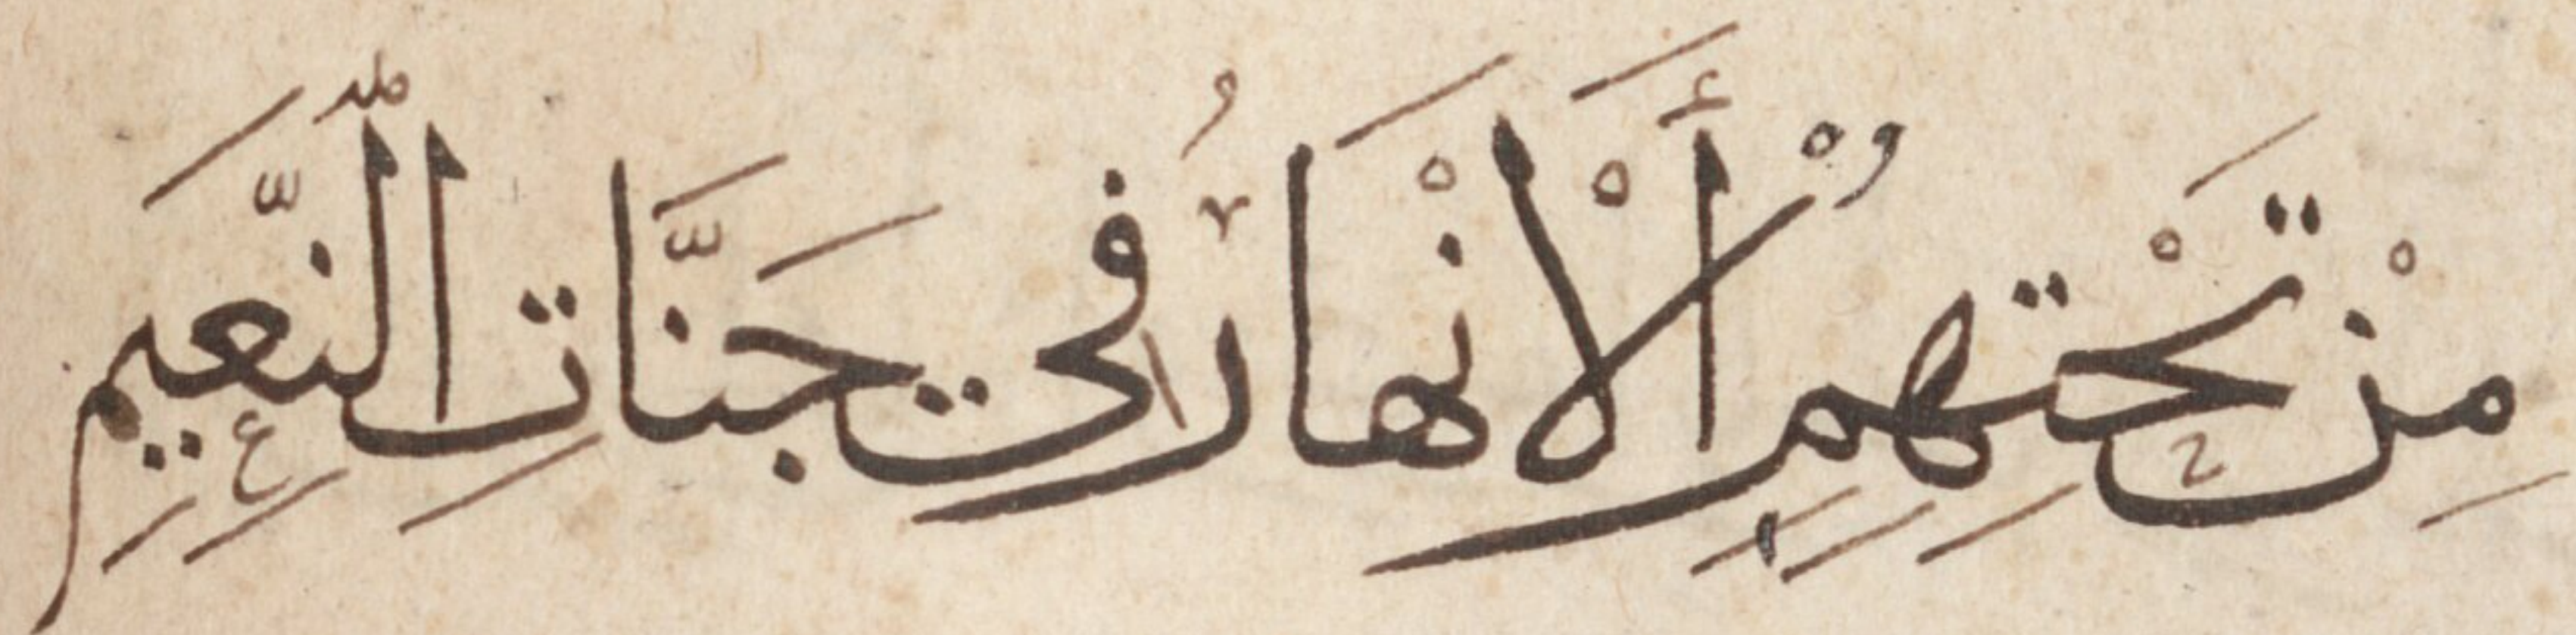 مِنْ تَحْتِهِمِ أَلْاَنْهَارُ فِي جَنَّاتِ النَّعِيمِ